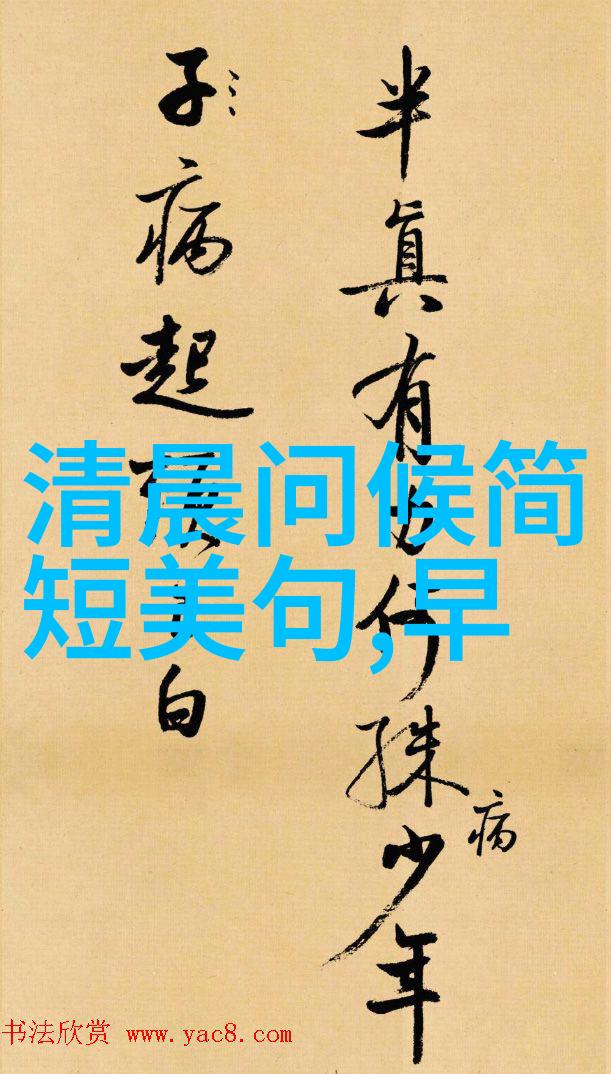 半眞有何殊少年
病
子病起白
清晨问候简
短美句,早
书法欣赏 www.yac8.com